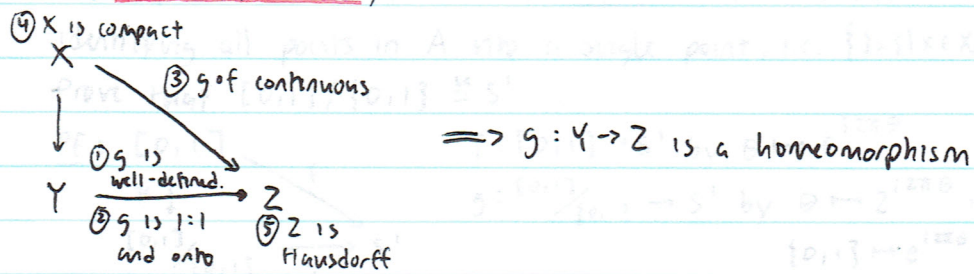 ④ X is compact
X
③ g∘f continuous
① g is
well-defined.
Y
Z
② g is 1:1
and onto
⑤ Z is
Hausdorff
⟹ g : Y → Z is a homeomorphism